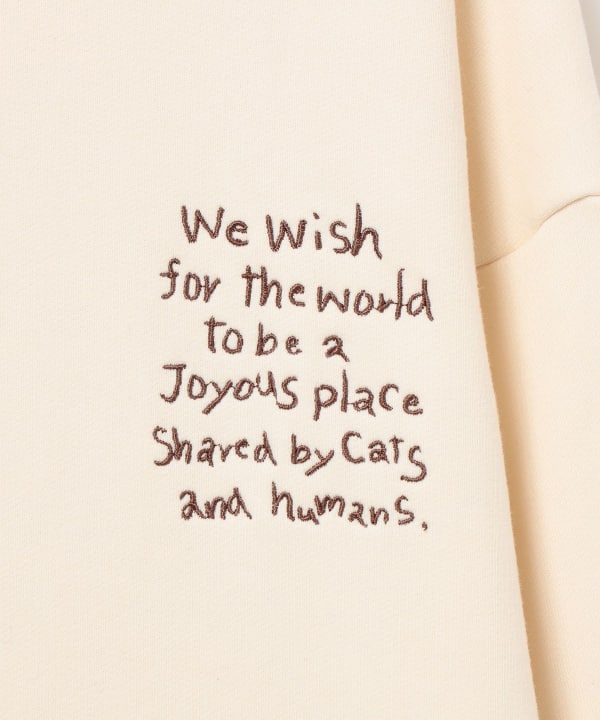 We Wish
for the world
to be a
Joyous place
Shared by Cats
and humans.